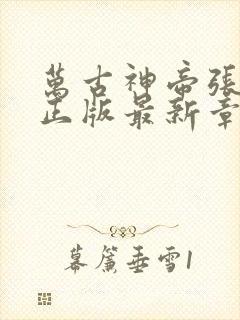 萬古神帝張
正版最新章
幕簾垂雪1